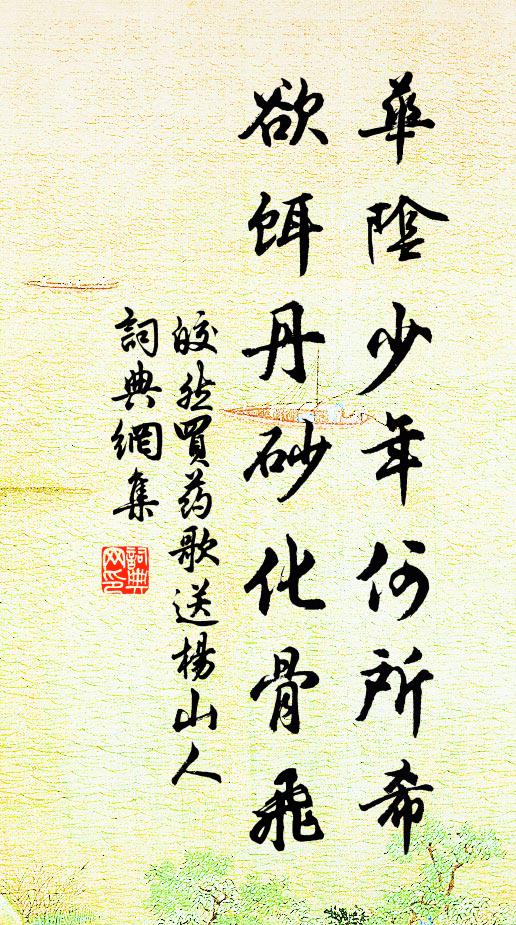 華陰少年何所希
欲餌丹砂化骨飛
皎然買药歌送楊山人
詞典網集
詞典网印